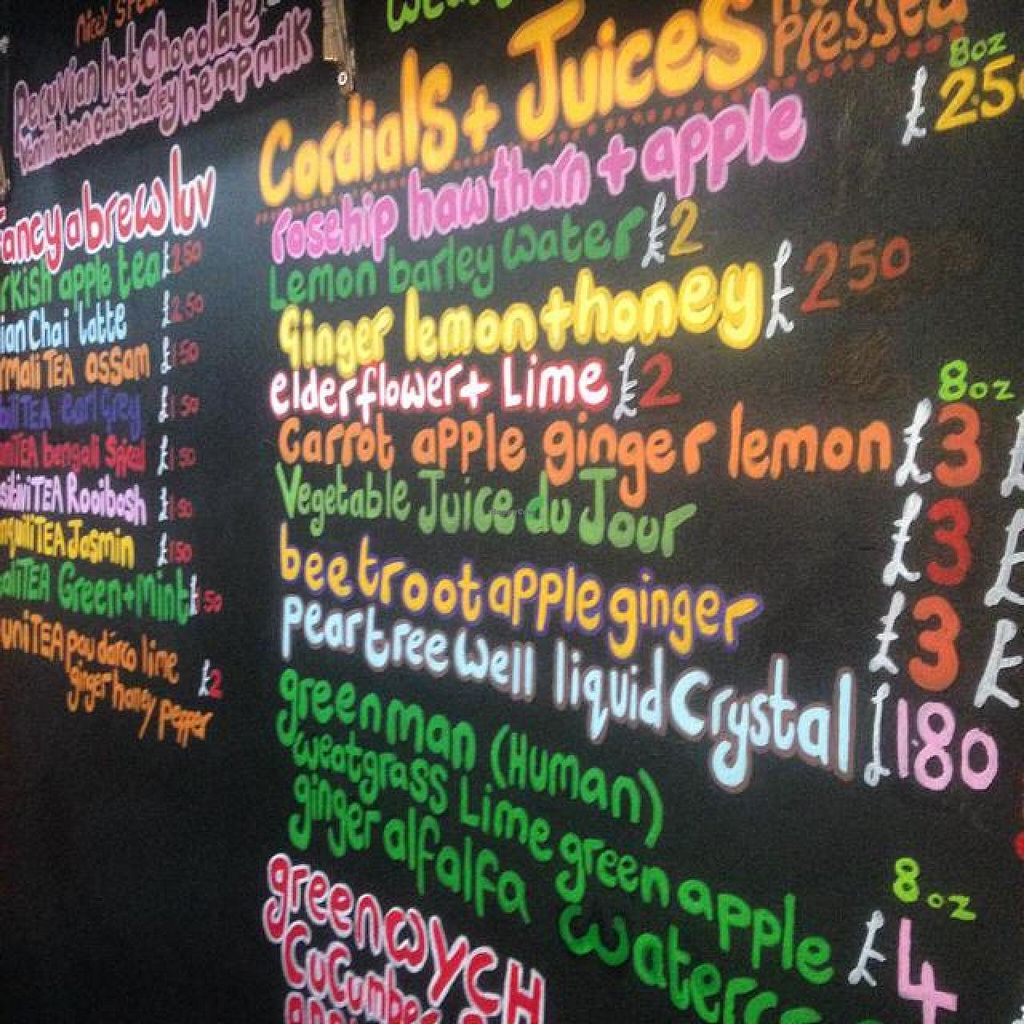 Peruvian hot Chocolate
Vanilla bean oats barley hemp milk
Fancy a brew luv
rkish apple tea £2.50
ian Chai latte £2.50
rmaliTEA assam £1.50
TEA earl Grey £1.50
TEA bengali £1.50
sibiliTEA Rooibosh £1.50
nquiliTEA Jasmin £150
aliTEA Green + Mint £1.50
uniTEA pau darco lime £2
ginger honey pepper
Cordials + Juices
Pressed
8oz
rosehip hawthorn + apple £2.50
Lemon barley water £2
Ginger lemon + honey £250
elderflower + Lime £2
8oz
Carrot apple ginger lemon £3 £
Vegetable Juice du Jour £3 £
beetroot apple ginger £3 £
peartree well liquid Crystal £1.80
green man (Human)
weatgrass Lime green apple
8oz
ginger alfalfa watercr £4
greenwych